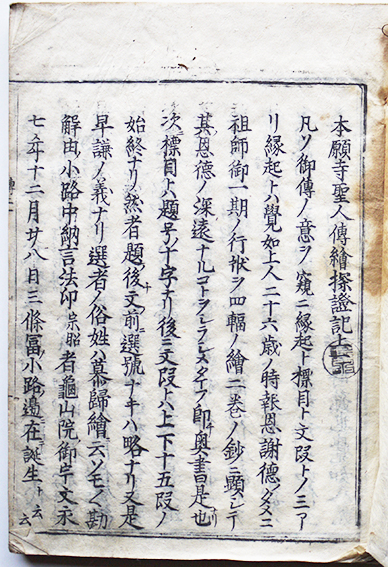 本願寺聖人傳繪探證記上
凡ソ御傳ノ意ヲ窺ニ縁起ト標目ト文段トノ三ア
リ縁起トハ覺如上人二十六歳ノ時報恩謝德ノタメニ
祖師御一期ノ行狀ヲ四幅ノ繪二卷ノ鈔ニ顯シテ
其恩德ノ深遠ナルコトヲシラシメタイフ即奥書曰是也
次標目トハ題号ノ十字ナリ後ニ文段トハ上下十五段ノ
始終ナリノ然者題後文前ニ選號ナキハ略ナリ又是
早謙ノ義ナリ選者ノ俗姓ハ慕歸繪ニ云ソモ〱勘
解由小路中納言法印宗昭者龜山院御宇文永
七年十二月廿八日三條冨小路邊在誕生ト云云